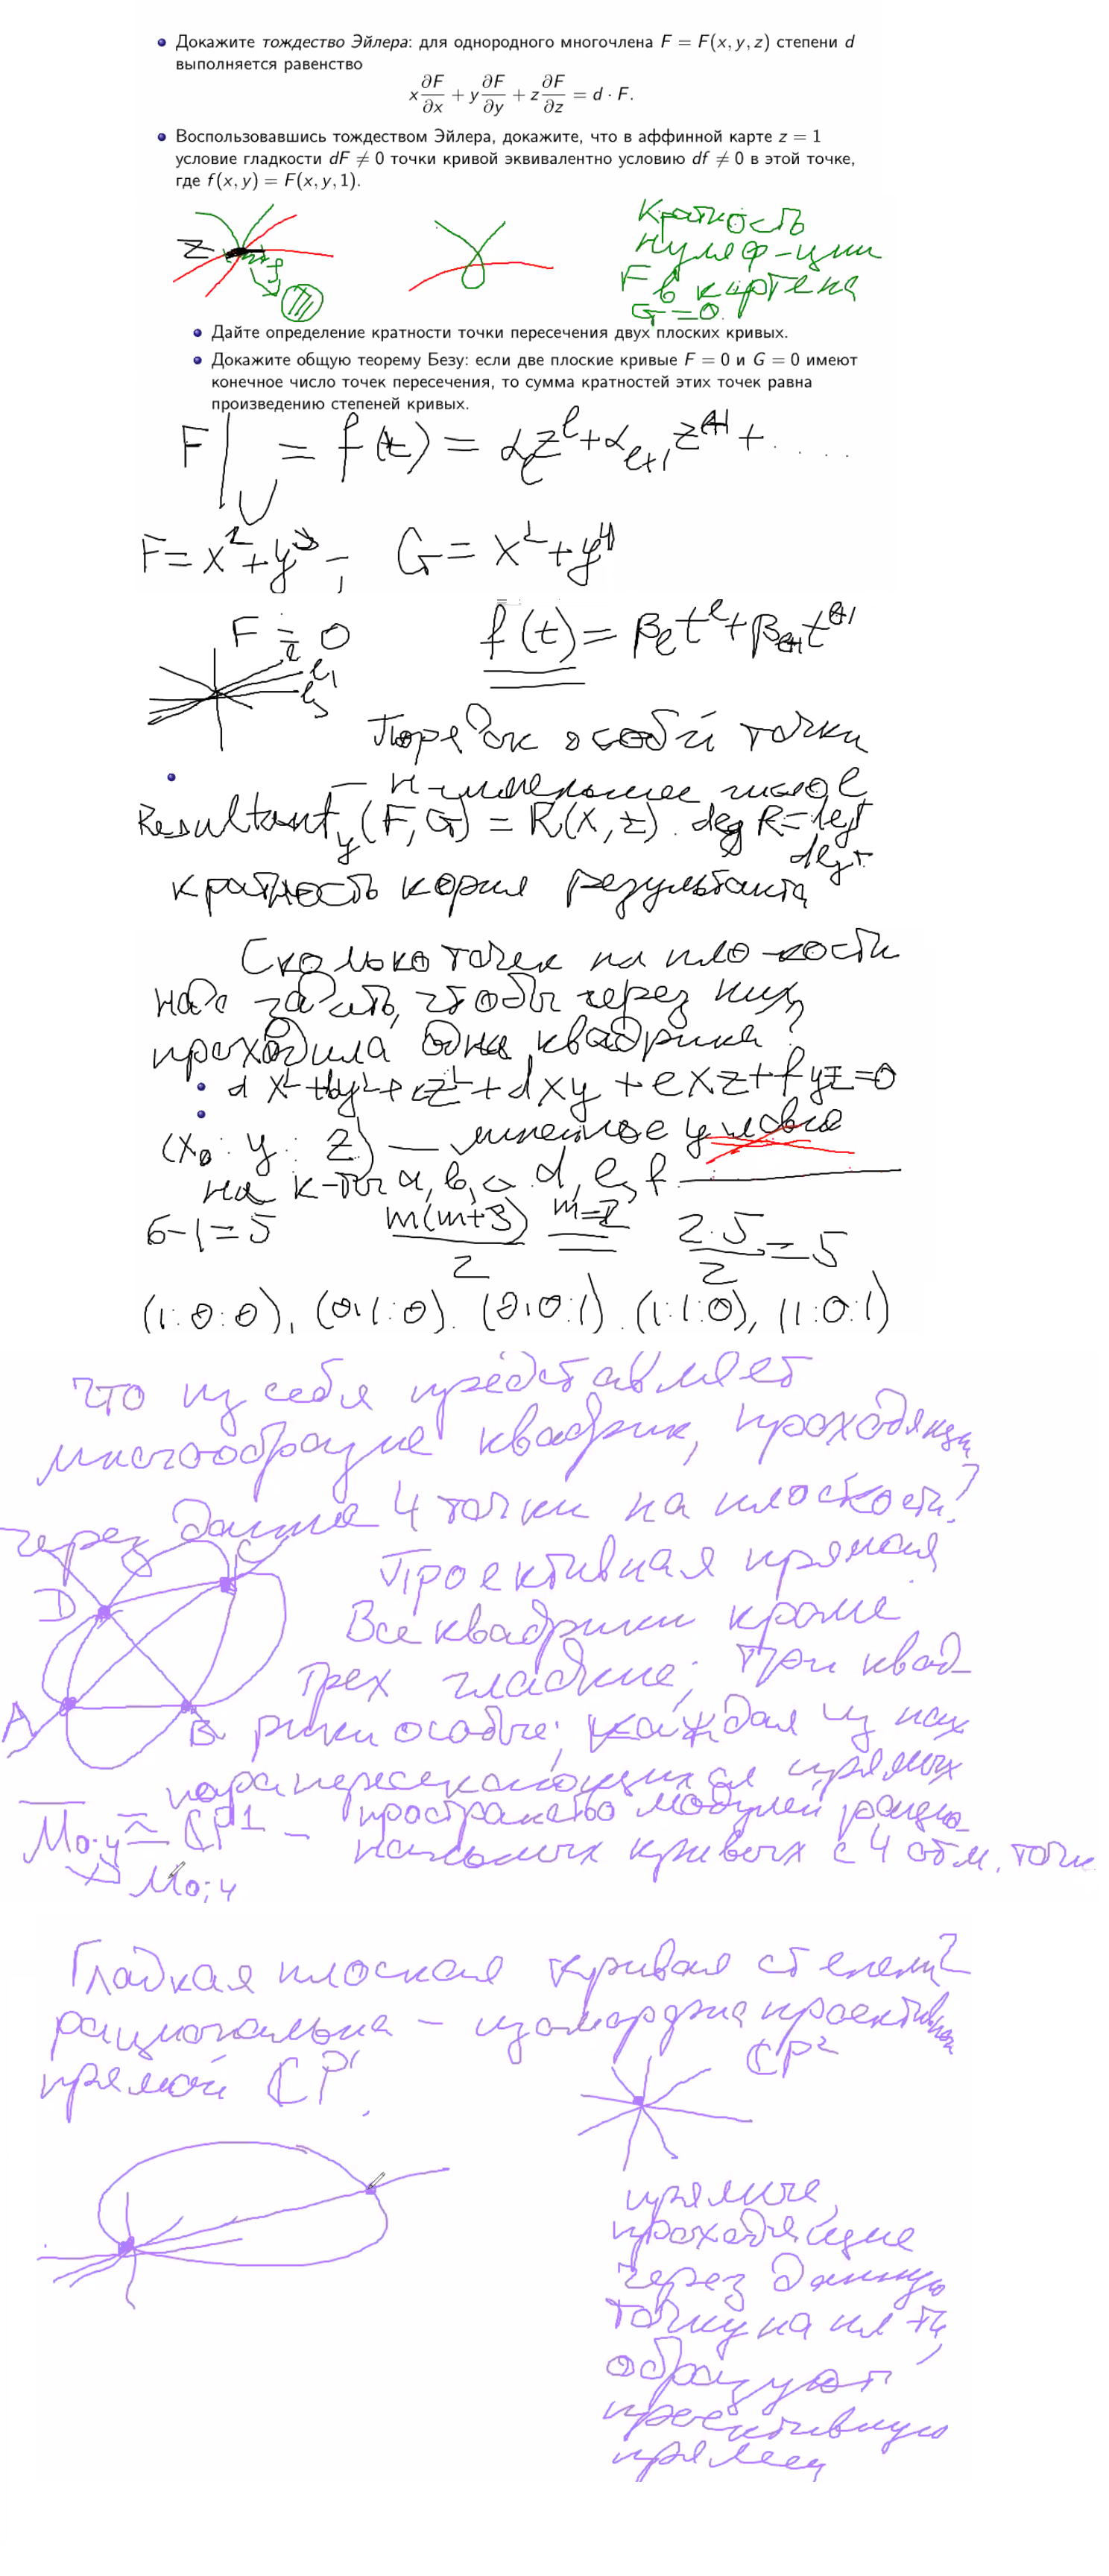 • Докажите тождество Эйлера: для однородного многочлена F = F(x, y, z) степени d
выполняется равенство
x ∂F/∂x + y ∂F/∂y + z ∂F/∂z = d · F.
• Воспользовавшись тождеством Эйлера, докажите, что в аффинной карте z = 1
условие гладкости dF ≠ 0 точки кривой эквивалентно условию df ≠ 0 в этой точке,
где f(x, y) = F(x, y, 1).
Z
Кратность
нуля ф-ции
F в карте на
G = 0.
• Дайте определение кратности точки пересечения двух плоских кривых.
• Докажите общую теорему Безу: если две плоские кривые F = 0 и G = 0 имеют
конечное число точек пересечения, то сумма кратностей этих точек равна
произведению степеней кривых.
F|_U = f(t) = α_ℓ z^ℓ + α_{ℓ+1} z^{ℓ+1} + ....
F = x² + y³; G = x² + y⁴
F = 0
f(t) = β_ℓ t^ℓ + β_{ℓ+1} t^{ℓ+1}
Порядок особой точки
Resultant_y (F, G) = R(x, z). deg R =
кратность корня результанта
Сколько точек на пло-кости
надо задать, чтобы через них
проходила одна квадрика?
• a x² + by² + cz² + dxy + exz + fyz = 0
(x₀ : y : z) — линейное условие
на к-ты a, b, c, d, e, f
6-1=5 m(m+3)/2 = m=2 2·5/2 = 5
(1:0:0), (0:1:0). (0:0:1). (1:1:0), (1:0:1)
что из себя представляет
многообразие квадрик, проходящих
через данные 4 точки на плоскости?
C
D
A
B
Проективная прямая
Все квадрики кроме
трех гладкие; три квад-
рики особые; каждая из них
пара пересекающихся прямых
M̄₀;₄ ≅ ℂP¹ – пространство модулей рацио-
нальных кривых с 4 отм. точк
M₀;₄
Гладкая плоская кривая степени 2
рациональна – изоморфна проективной
прямой ℂP¹.
ℂP²
прямые,
проходящие
через данную
точку на пл-ти,
образуют
проективную
прямую